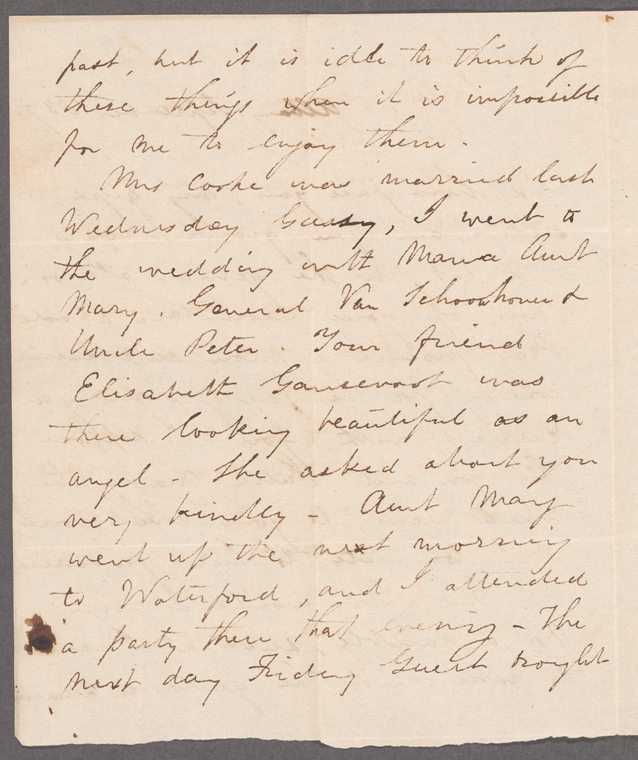 past, but it is idle to think of
these things when it is impossible
for me to enjoy them.
Mrs Cooke was married last
Wednesday I went to
the wedding with Mama Aunt
Mary. General Van Schoonhoven &
Uncle Peter. Your friend
Elisabeth Gansevoort was
there looking beautiful as an
angel - She asked about you
very kindly - Aunt Mary
went up the next morning
to Waterford, and I attended
a party there that evening - The
next day Friday Guert brought